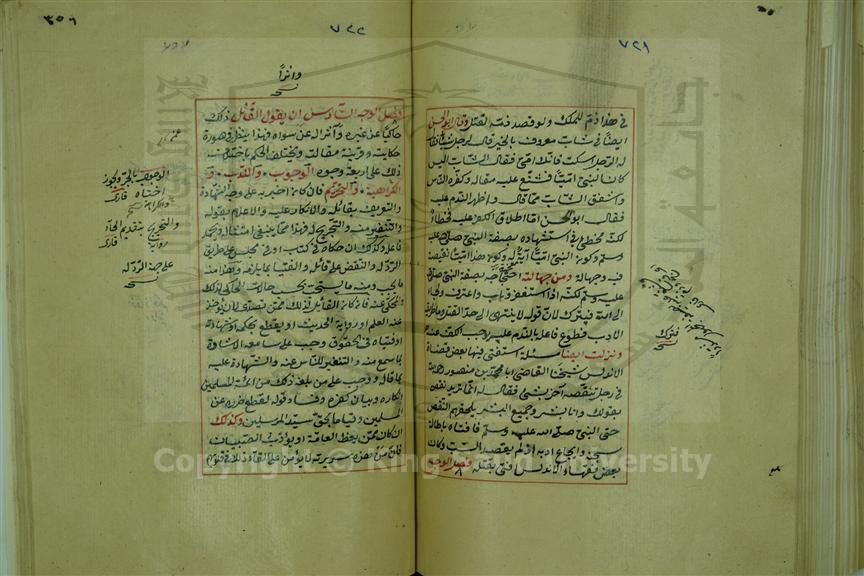 ٧٢١
في هذا ذم للملك ولو قصد ذمه لقتل وقال ابو الحسن
ايضا في شاب معروف بالخير قال لرجل شيئا فقال
له الرجل اسكت فانك امي فقال الشاب اليس
كان النبي اميا فشنع عليه مقاله وكفره الناس
واشفق الشاب مما قال واظهر الندم عليه
فقال ابو الحسن اما اطلاق الكفر عليه فخطأ
لكنه مخطئ في استشهاده بصفة النبي صلى الله عليه
وسلم وكون النبي اميا آية له وكون هذا اميا نقيصة
فيه وجهالة ومن جهالته احتجاجه بصفة النبي صلى الله
عليه وسلم لكنه اذا استغفر وتاب واعترف ولجأ
الى الله فيترك لان قوله لا ينتهي الى حد القتل وما طريقه
الادب فطوع فاعله بالندم عليه يوجب الكف عنه
ونزلت ايضا مسئلة استفتى فيها بعض قضاة
الاندلس شيخنا القاضي ابا محمد بن منصور رحمه
في رجل تنقصه آخر بشيء فقال له انما تريد نقصي
بقولك وانا بشر وجميع البشر يلحقهم النقص
حتى النبي صلى الله عليه وسلم فافتاه باطالة
سجنه وايجاع ادبه اذ لم يقصد السب وكان
بعض فقهاء الاندلس افتى بقتله فصل الوجه
فيترك
٣٥٦
٧٢٢
وآثرا
فصل الوجه السادس ان يقول القائل ذلك
حاكيا عن غيره وآثرا له عن سواه فهذا ينظر في صورة
حكايته وقرينة مقالته ويختلف الحكم باختلاف
ذلك على اربعة وجوه الوجوب والندب و
الكراهية والتحريم فان كان اخبر به على وجه الشهادة
والتعريف بقائله والانكار عليه والاعلام بقوله
والتنفير منه والتجريح له فهذا مما ينبغي امتثاله ويحمد
فاعله وكذلك ان حكاه في كتاب او في مجلس على طريق
الرد له والنقض على قائله والفتيا بما يلزمه وهذا منه
ما يجب ومنه ما يستحب بحسب حالات الحاكي لذلك
والمحكي عنه فان كان القائل لذلك ممن تصدى لان يؤخذ
عنه العلم او رواية الحديث او يقطع بحكمه او شهادته
او فتياه في الحقوق وجب على سامعه الاشادة
بما سمع منه والتنفير للناس عنه والشهادة عليه
بما قاله ووجب على من بلغه ذلك من ائمة المسلمين
انكاره وبيان كفره وفساد قوله لقطع ضرره عن
المسلمين وقياما بحق سيد المرسلين وكذلك
ان كان ممن يعظ العامة او يؤدب الصبيان
فان من هذه سريرته لا يؤمن على القاء ذلك في قلوبهم
على جهة الرد له
Copyright © King Saud University